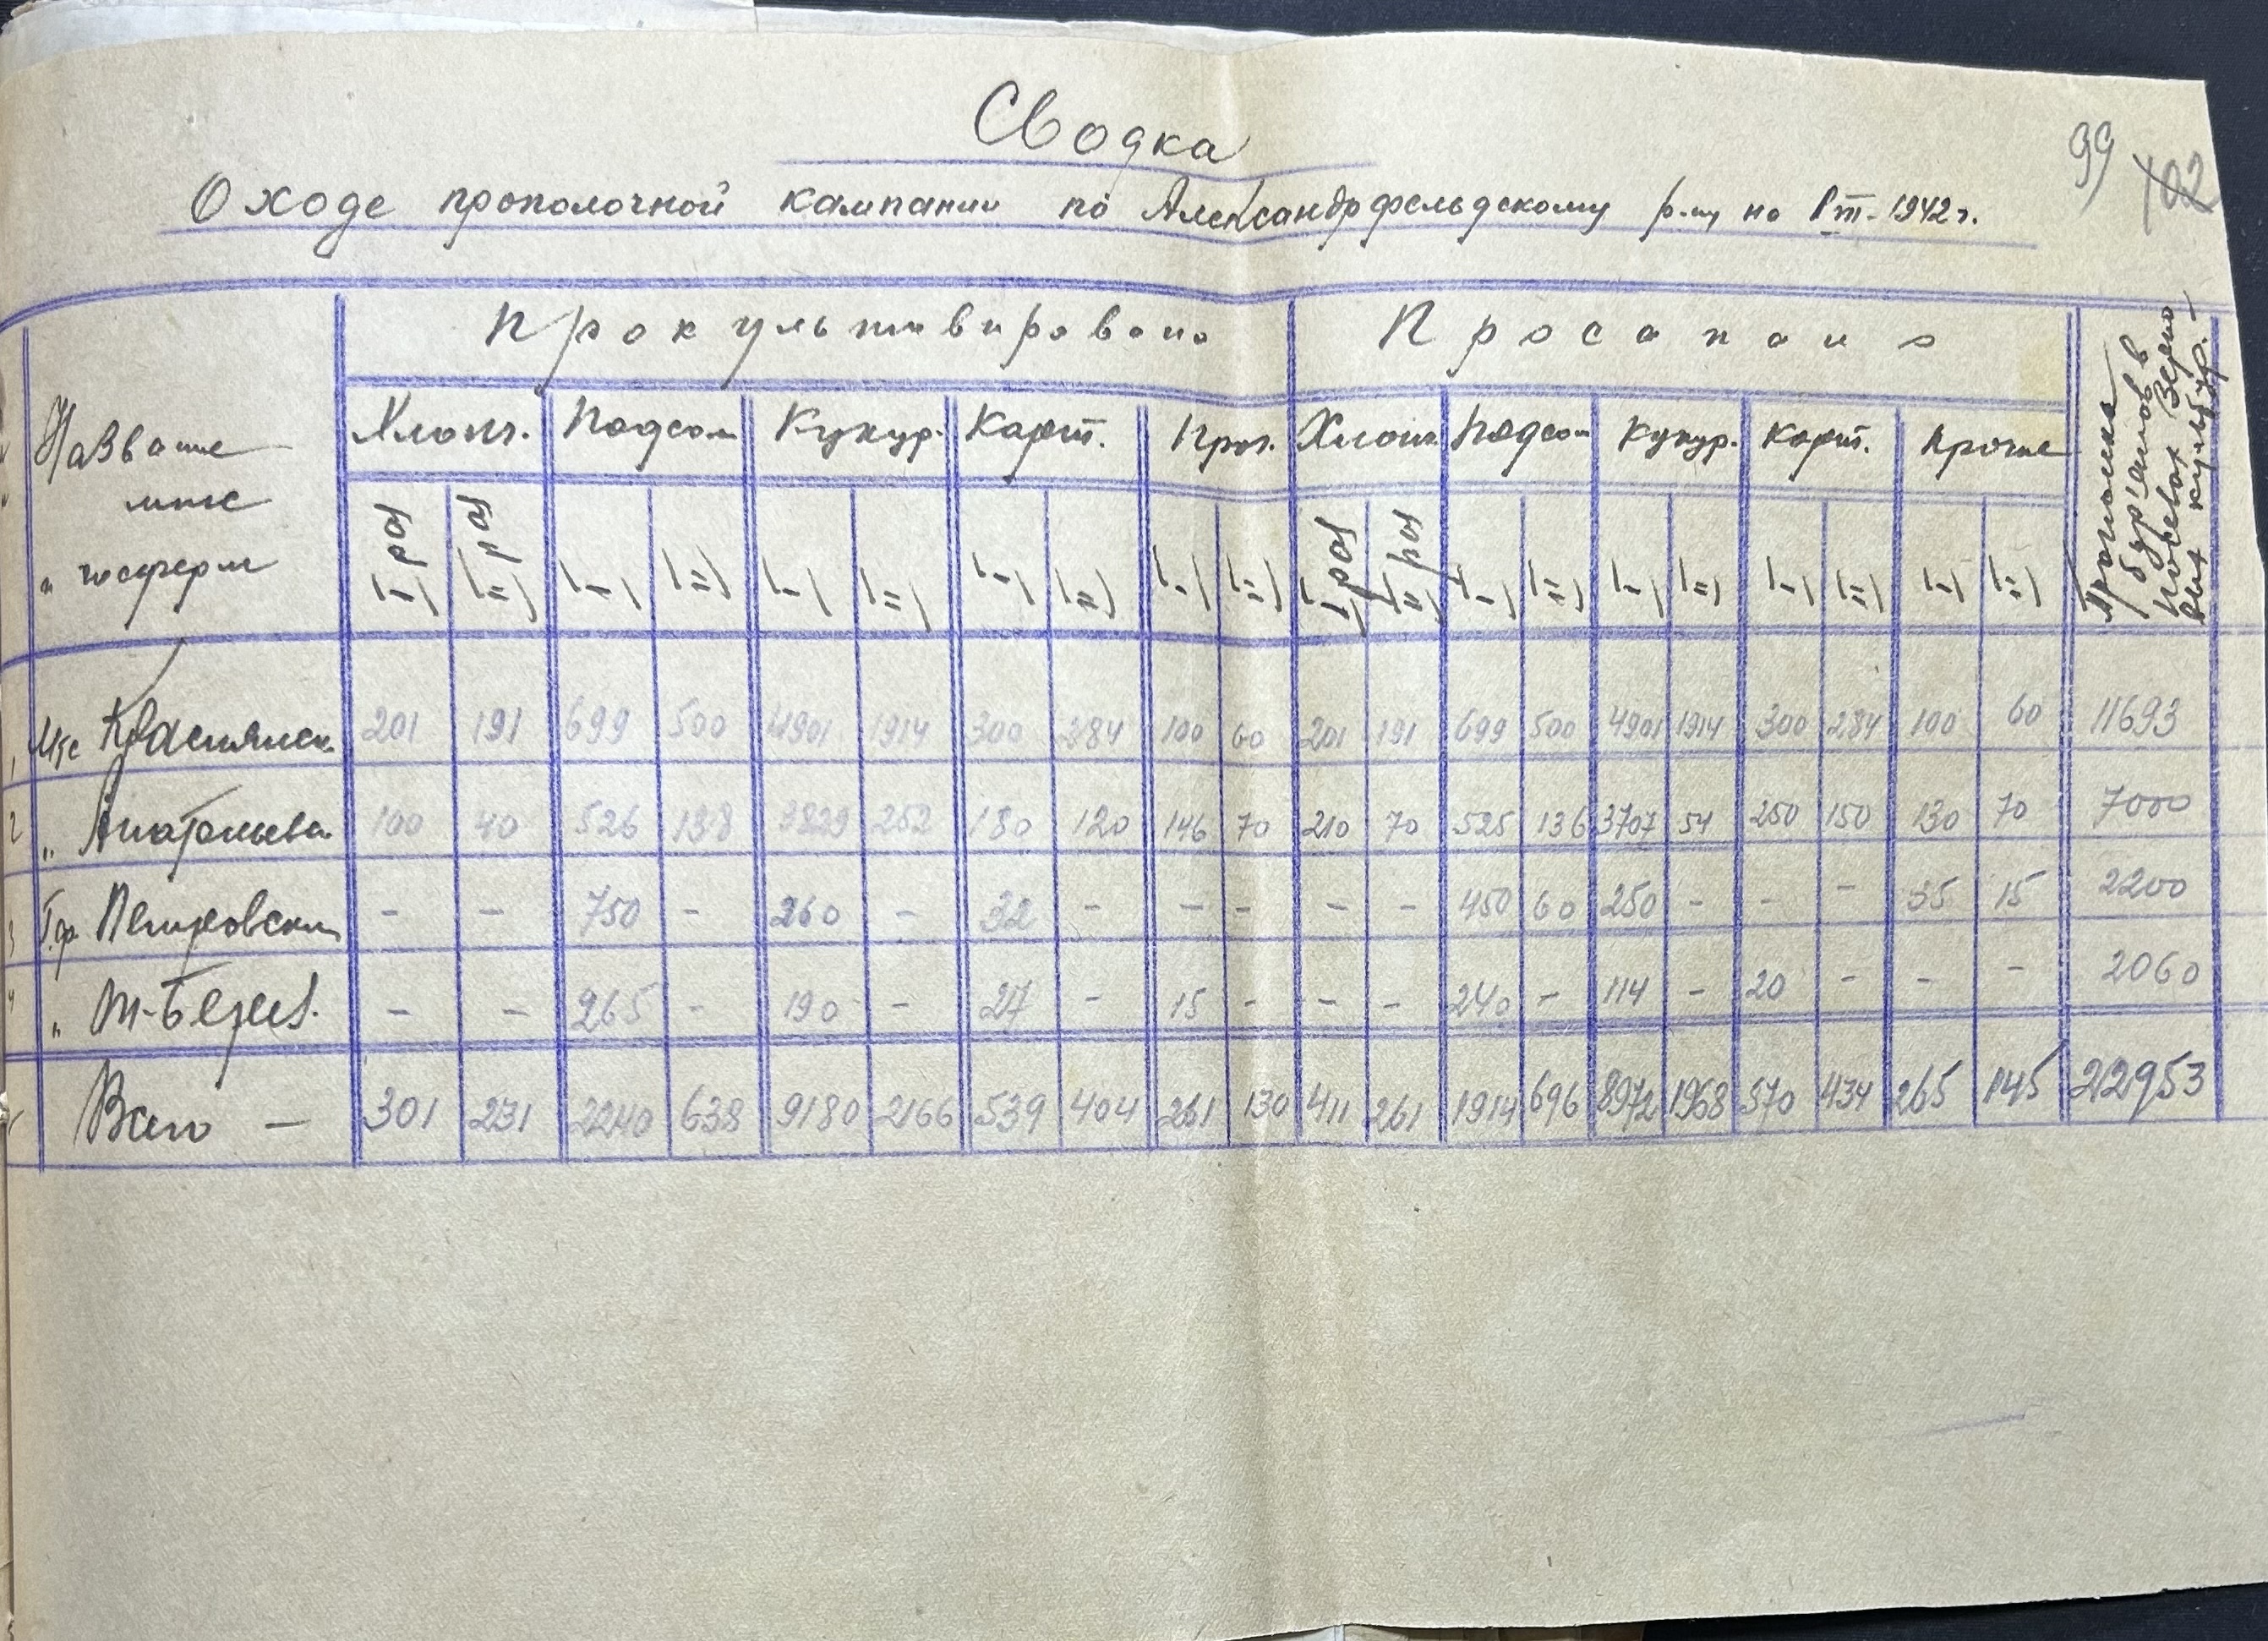 Сводка
О ходе прополочной кампании по Александрфельдскому р-ну на 1942 г.
99
102
Название мтс и госферм
Прокультивировано Просапано Прополка бур'янов в посевах зерновых культур. –
Хлопч. Подсол Кукур. Карт. Проч. Хлопч. Подсол Кукур. Карт. Прочие
I раз II раз I II I II I II I II I раз II раз I II I II I II I II
1 Мтс 201 191 699 500 4901 1914 300 284 100 60 201 191 699 500 4901 1914 300 284 100 60 11693
2 " Анатольева 100 40 526 138 3829 252 180 120 146 70 210 70 525 136 3707 54 250 150 130 70 7000
3 Г.ф. Петровский – – 750 – 260 – 32 – – – – – 450 60 250 – – – 35 15 2200
4 " – – 265 – 190 – 27 – 15 – – – 240 – 114 – 20 – – – 2060
Всего – 301 231 2240 638 9180 2166 539 404 261 130 411 261 1914 696 8972 1968 570 434 265 145 22953